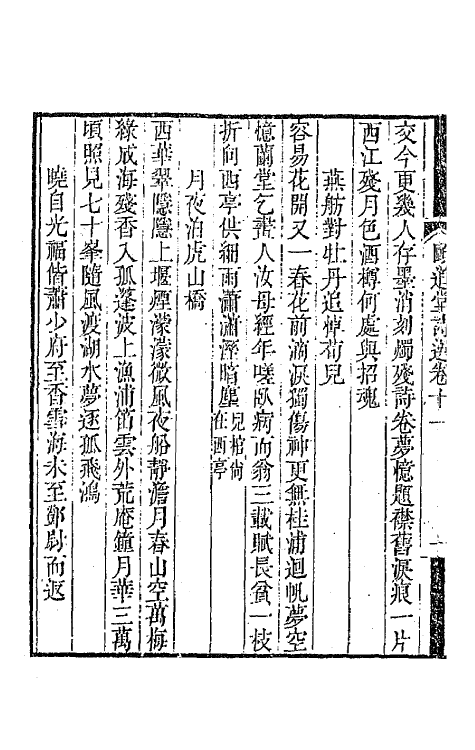 頤道堂詩選卷十一
交今更幾人存墨消刻燭殘詩卷夢憶題襟舊淚痕一片
西江殘月色酒樽何處與招魂
燕舫對牡丹追悼荀兒
容易花開又一春花前滴淚獨傷神更無桂浦迴帆夢空
憶蘭堂乞畫人汝母經年嗟臥病而翁三載賦長貧一枝
折向西亭供細雨瀟瀟溼暗塵兒棺尚在西亭
月夜泊虎山橋
西華翠隱隱上堰煙濛濛微風夜船靜澹月春山空萬梅
綠成海殘香入孤篷波上漁浦笛雲外荒庵鐘月華三萬
頃照見七十峯隨風渡湖水夢逐孤飛鴻
曉自光福偕蕭少府至香雪海未至鄧尉而返